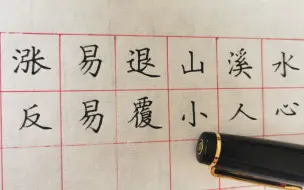 涨易退山溪水
反易覆小人心